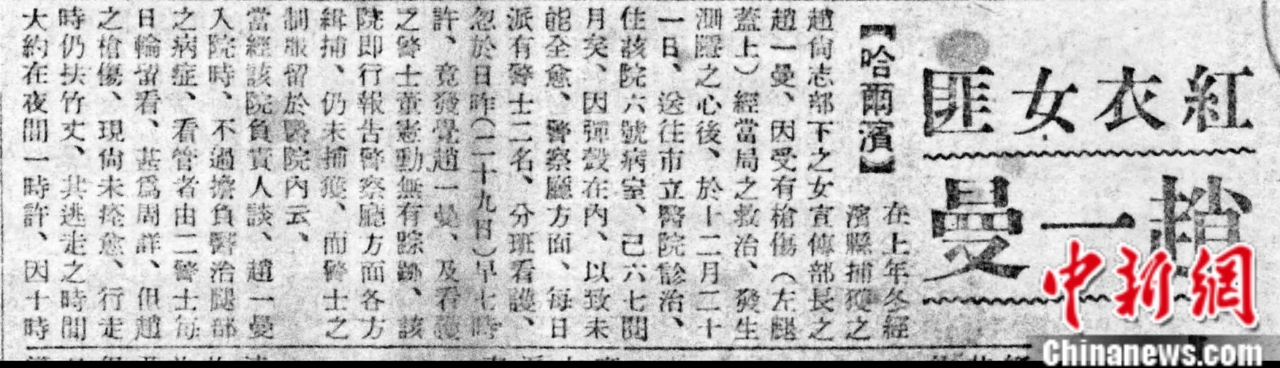 紅衣女匪
趙一曼
【哈爾濱】
在上年冬經
濱縣捕獲之
趙尙志部下之女宣傳部長之
趙一曼、因受有槍傷（左腿
蓋上）經當局之救治、發生
測隱之心後、於十二月二十
一日、送往市立醫院診治、
住該院六號病室、已六七閱
月矣、因彈殼在內、以致未
能全愈、警察廳方面、每日
派有警士二名、分班看護、
忽於日昨（二十九日）早七時
許、竟發覺趙一曼、及看護
之警士董憲勳無有踪跡、該
院即行報告警察廳方面各方
緝捕、仍未捕獲、而警士之
制服留於醫院內云、
當經該院負責人談、趙一曼
入院時、不過擔負醫治腿部
之病症、看管者由二警士每
日輪留看、甚爲周詳、但趙
之槍傷、現尙未痊愈、行走
時仍扶竹丈、其逃走之時間
大約在夜間一時許、因十時
中新網
Chinanews.com